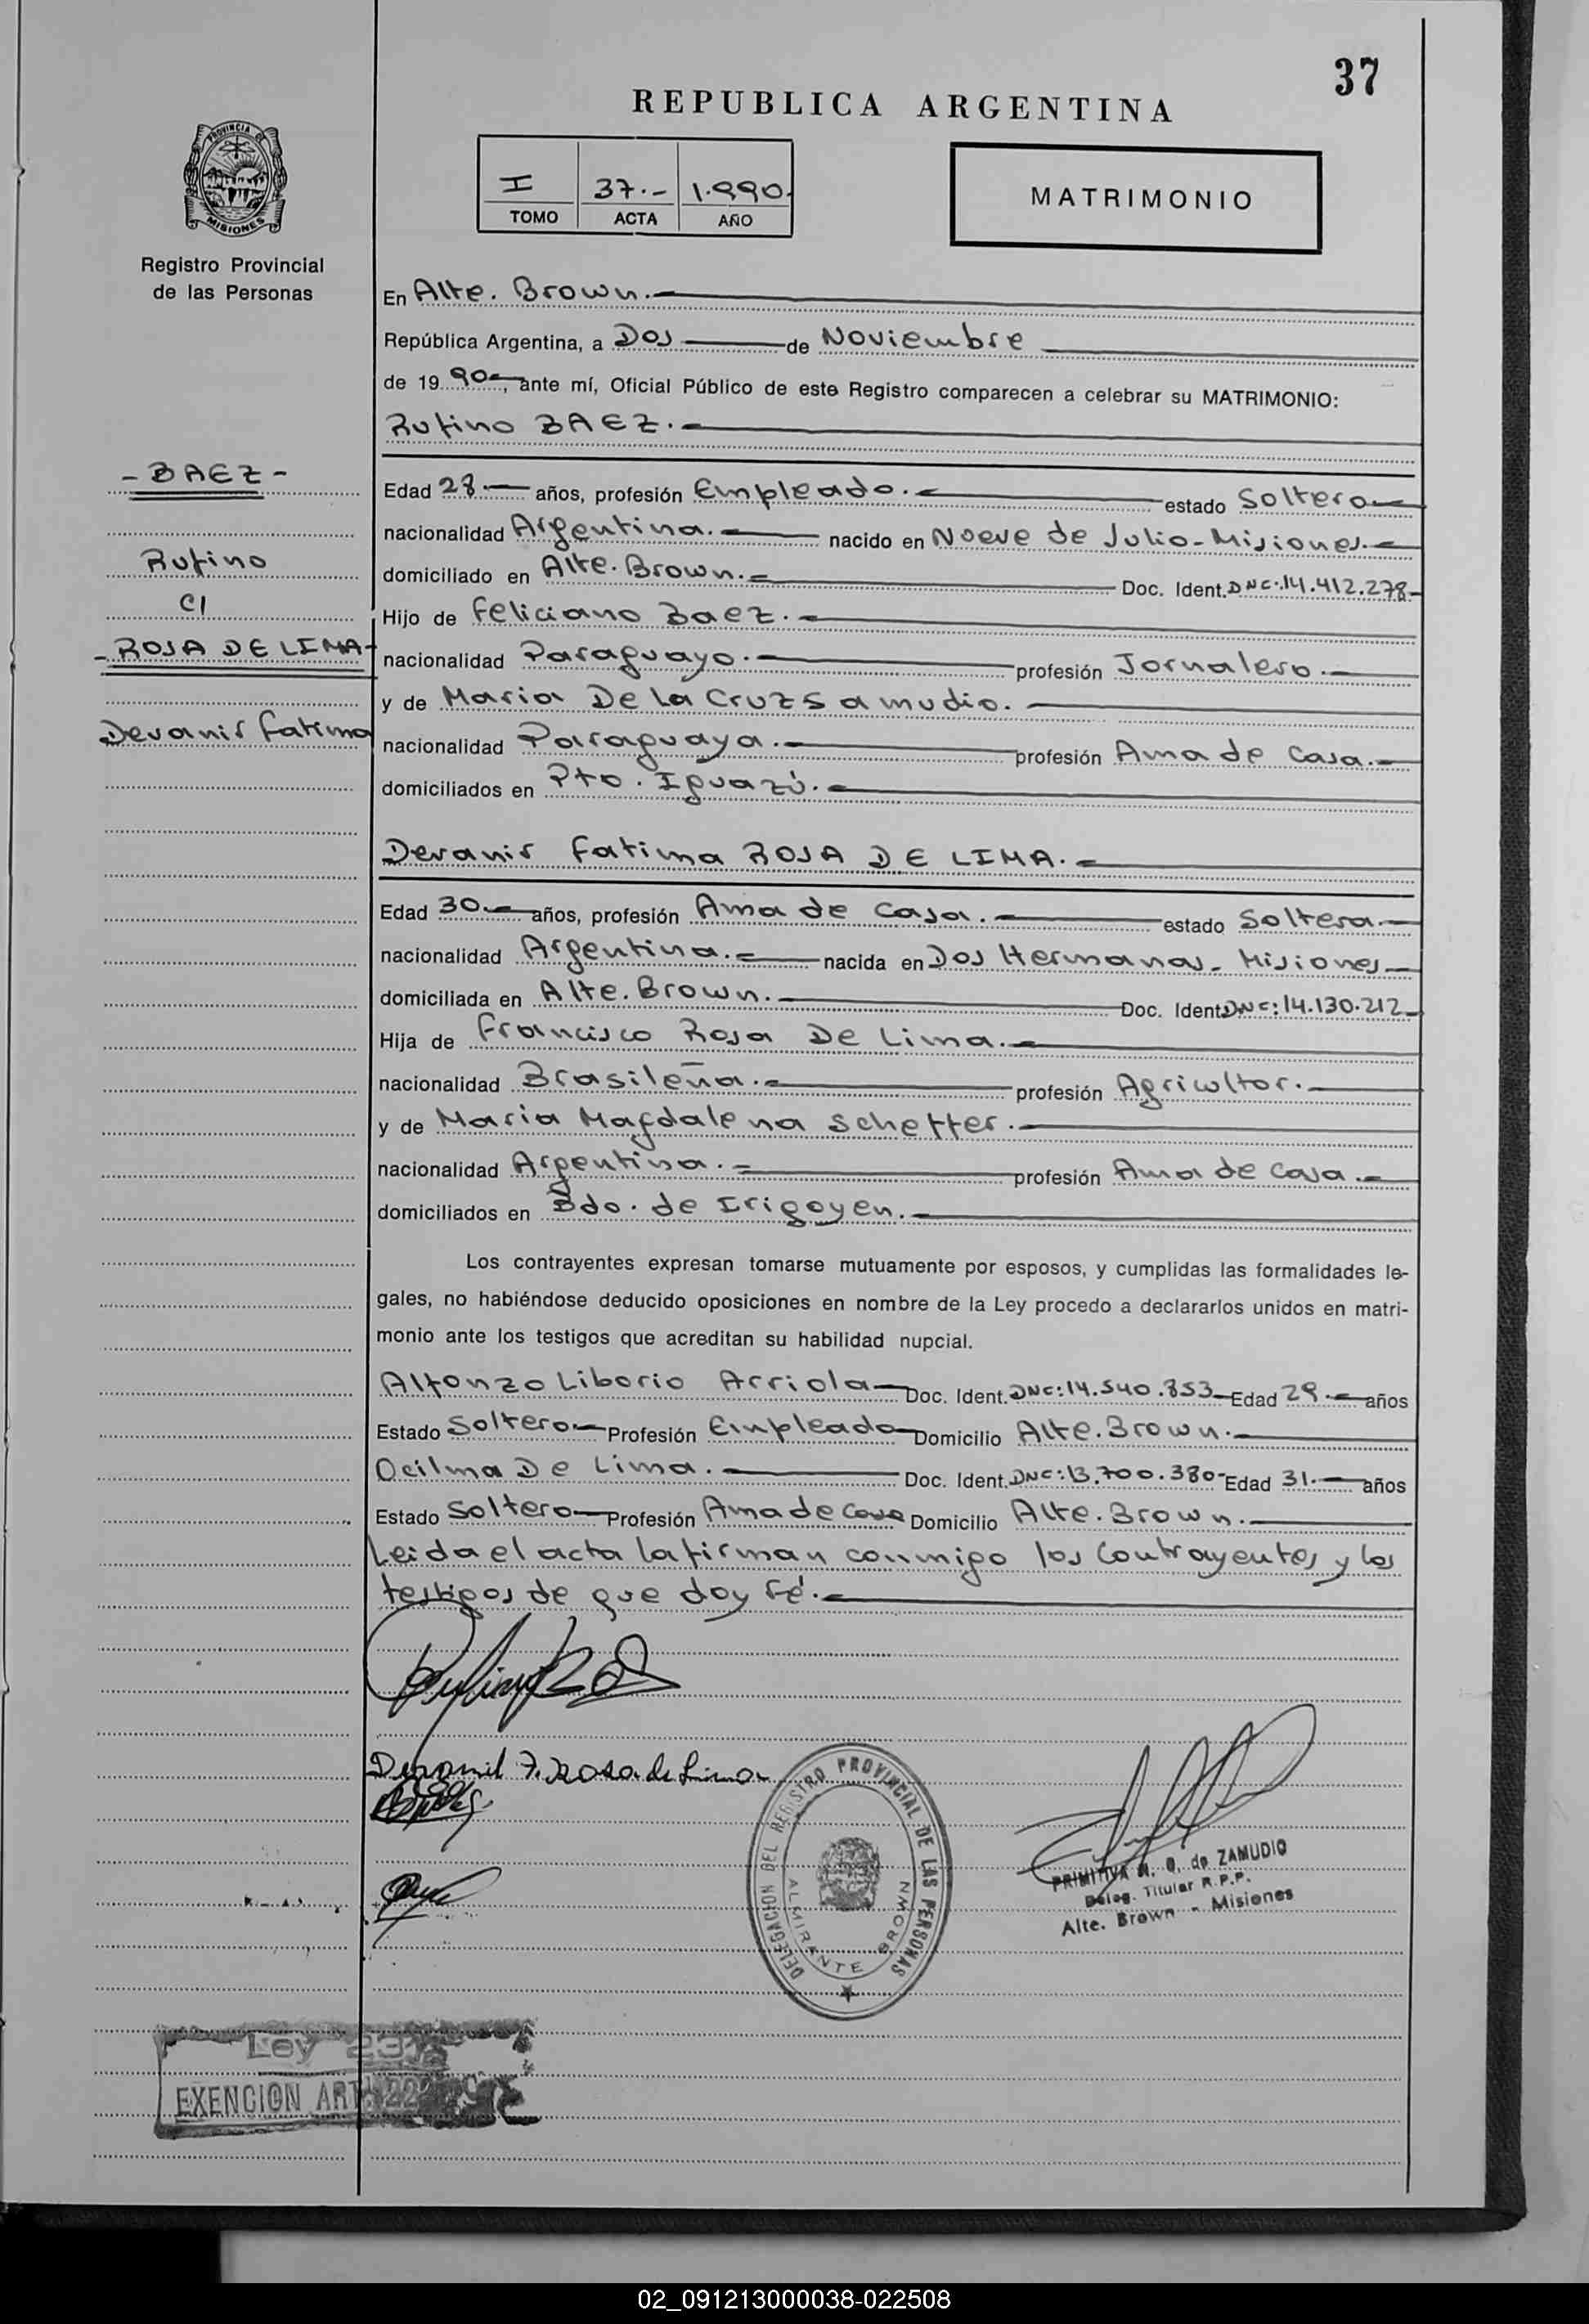 37
REPUBLICA ARGENTINA
PROVINCIA DE
MISIONES
I 37.- 1.990.
TOMO ACTA AÑO
MATRIMONIO
Registro Provincial
de las Personas
En Alte. Brown.
República Argentina, a Dos de Noviembre
de 1990, ante mí, Oficial Público de este Registro comparecen a celebrar su MATRIMONIO:
Rufino BAEZ.
- BAEZ -
Edad 28 años, profesión Empleado. estado Soltero
nacionalidad Argentina. nacido en Nueve de Julio-Misiones.
Rufino
domiciliado en Alte. Brown. Doc. Ident. DNC:14.412.278-
C/
Hijo de Feliciano Baez.
- ROSA DE LIMA-
nacionalidad Paraguayo. profesión Jornalero.
y de Maria De La Cruz Samudio.
Devanir Fatima
nacionalidad Paraguaya. profesión Ama de Casa.
domiciliados en Pto. Iguazú.
Devanir Fatima ROSA DE LIMA.
Edad 30 años, profesión Ama de Casa. estado Soltera
nacionalidad Argentina. nacida en Dos Hermanas-Misiones
domiciliada en Alte. Brown. Doc. Ident DNC:14.130.212
Hija de Francisco Rosa De Lima.
nacionalidad Brasileña. profesión Agricultor.
y de Maria Magdalena Schetter.
nacionalidad Argentina. profesión Ama de Casa.
domiciliados en Bdo. de Irigoyen.
Los contrayentes expresan tomarse mutuamente por esposos, y cumplidas las formalidades le-
gales, no habiéndose deducido oposiciones en nombre de la Ley procedo a declararlos unidos en matri-
monio ante los testigos que acreditan su habilidad nupcial.
Alfonzo Liborio Arriola Doc. Ident. DNC:14.540.853 Edad 29 años
Estado Soltero Profesión Empleado Domicilio Alte. Brown.
Ocilma De Lima. Doc. Ident. DNC:13.700.380 Edad 31 años
Estado Soltero Profesión Ama de Casa Domicilio Alte. Brown.
Leida el acta la firman conmigo los Contrayentes y los
testigos de que doy Fé.
F. Rosa de Lima
DELEGACION DEL REGISTRO PROVINCIAL DE LAS PERSONAS
ALMIRANTE BROWN
PRIMITIVA de ZAMUDIO
Deleg. Titular R.P.P.
Alte. Brown - Misiones
Ley
EXENCION ART
02_091213000038-022508